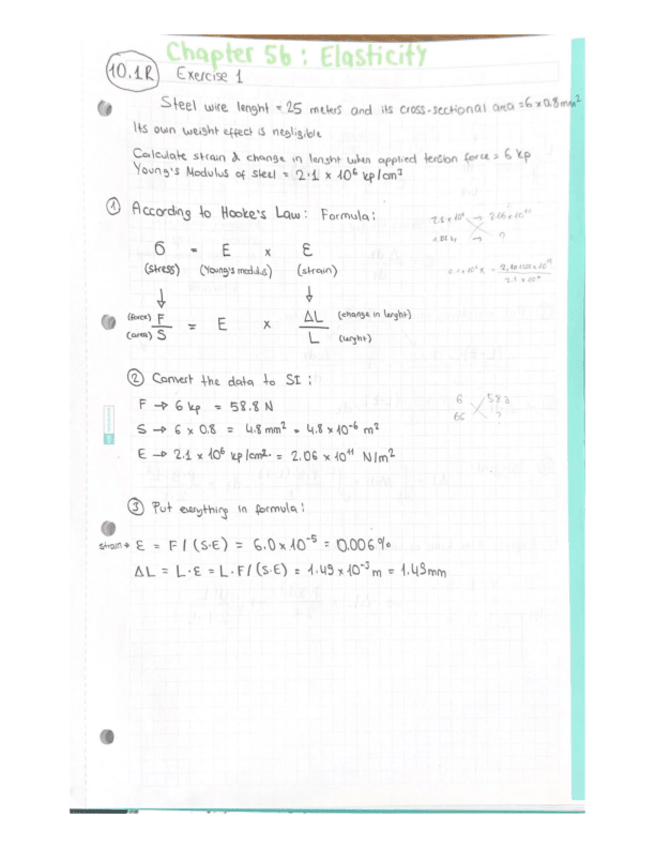 Chapter 5b : Elasticity
10.1R Exercise 1
Steel wire lenght = 25 meters and its cross-sectional area = 6 x 0.8 mm²
Its own weight effect is negligible
Calculate strain & change in lenght when applied tension force = 6 kp
Young's Modulus of steel = 2.1 x 10⁶ kp/cm²
① According to Hooke's Law: Formula:
σ = E x ε
(stress) (Young's modulus) (strain)
(force) F = E x ΔL (change in lenght)
(area) S L (lenght)
② Convert the data to SI :
F → 6 kp = 58.8 N
6 58.8
S → 6 x 0.8 = 4.8 mm² = 4.8 x 10⁻⁶ m²
E → 2.1 x 10⁶ kp/cm² = 2.06 x 10¹¹ N/m²
③ Put everything in formula:
strain → ε = F / (S·E) = 6.0 x 10⁻⁵ = 0.006%
ΔL = L·ε = L·F/(S·E) = 1.49 x 10⁻³ m = 1.49 mm